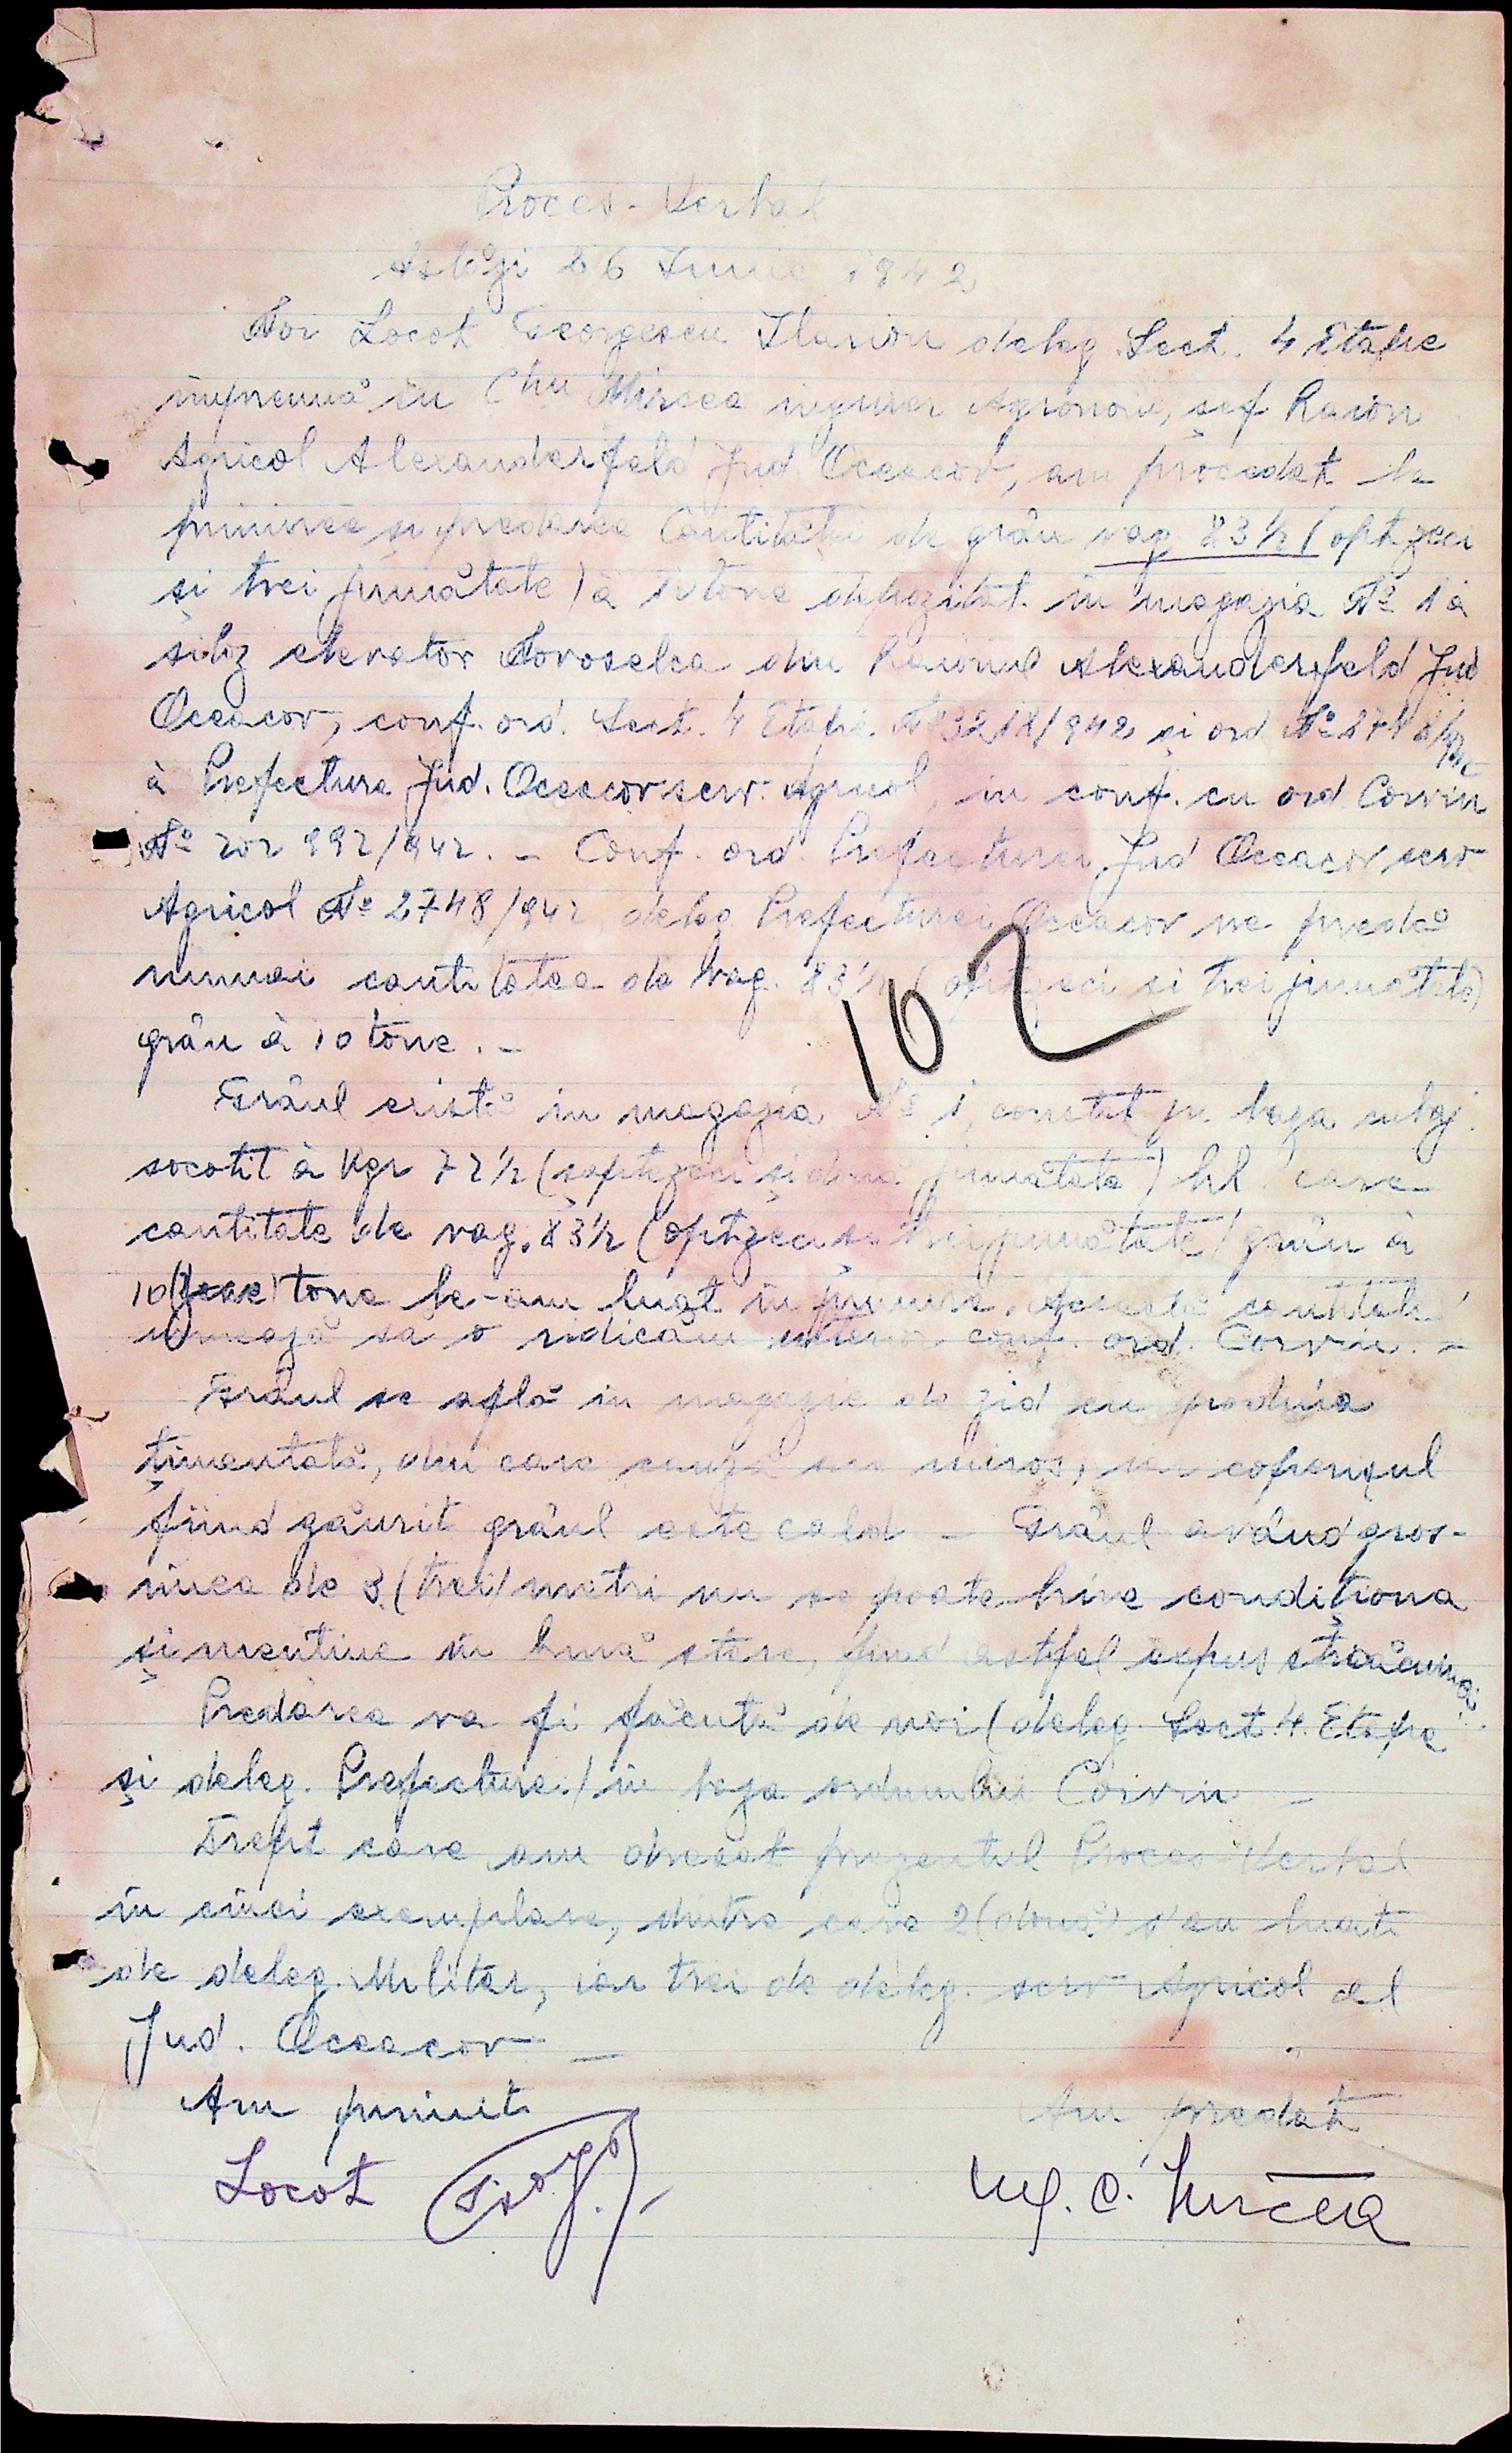 Proces-Verbal
Astăzi 26 Iunie 1942
Noi Locot Georgescu Ilarion deleg. Sect. 4 Etape
împreună cu Mircea inginer Agronom, șef Raion
Agricol Alexanderfeld Jud Oceacov, am procedat la
primirea și predarea Cantităței de grâu vag 83 1/2 (optzeci
și trei jumătate) à 10 tone depozitat în magazia No 1 a
siloz elevator Novoselca din Raionul Alexanderfeld Jud
Oceacov, conf. ord. Sect. 4 Etape No 3218/942 și ord No
à Prefectura Jud. Oceacov serv. Agricol, in conf. cu ord Corvin
No 202 992/942. – Conf. ord. Prefecturei Jud Oceacov serv
Agricol No 2748/942 deleg Prefecturei Oceacov ne predă
numai cantitatea de vag. 83 1/2 (optzeci și trei jumătate)
102
grâu à 10 tone. –
Grâul există in magazia No 1, constat pe baza
socotit à Kgr 72 1/2 (șaptezeci și doua jumătate) hl. care
cantitate de vag. 83 1/2 (optzeci și trei jumătate) grâu à
10 (zece) tone le-am luat în primire. Această cantitate
urmează sa o ridicăm ulterior conf. ord. Corvin. –
Grâul se află in magazie de zid cu podeua
țimentată, din care cauză are miros, iar coperișul
fiind găurit grâul este cald – Grâul având gros-
imea de 3 (trei) metri nu se poate bine condiționa
și mentine în bună stare, fiind astfel expus stricăciunei.
Predarea va fi făcută de noi (deleg. Sect. 4. Etape
și deleg. Prefecturei) în baza ordinului Corvin –
Drept care am dresat prezentul Proces-Verbal
în cinci exemplare, dintre care 2 (două) s'au luat
de deleg. Militar, iar trei de deleg. serv Agricol al
Jud. Oceacov –
Am primit
Am predat
Locot
Ing. C. Mircea